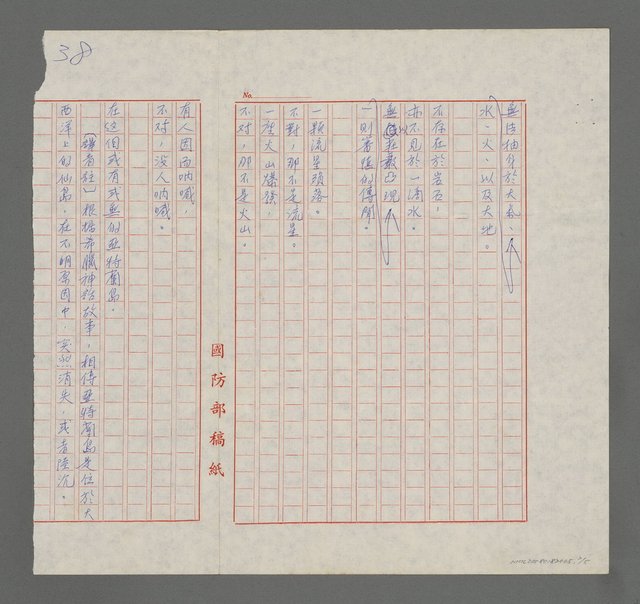 38
No.
無法抽身於大氣、
水、火、以及大地。
不存在於岩石，
亦不見於一滴水。
一則審慎的傳聞。
一顆流星頭落。
不對，那不是流星。
一座火山爆發，
不对，那不是火山。
國防部稿紙
有人因而吶喊，
不对，沒人吶喊。
在这個或有或無的亞特蘭島。
〔譯者註〕根據希臘神話故事，相傳亞特蘭島是位於大
西洋上的仙島，在不明原因中，突然消失，或者陸沉。